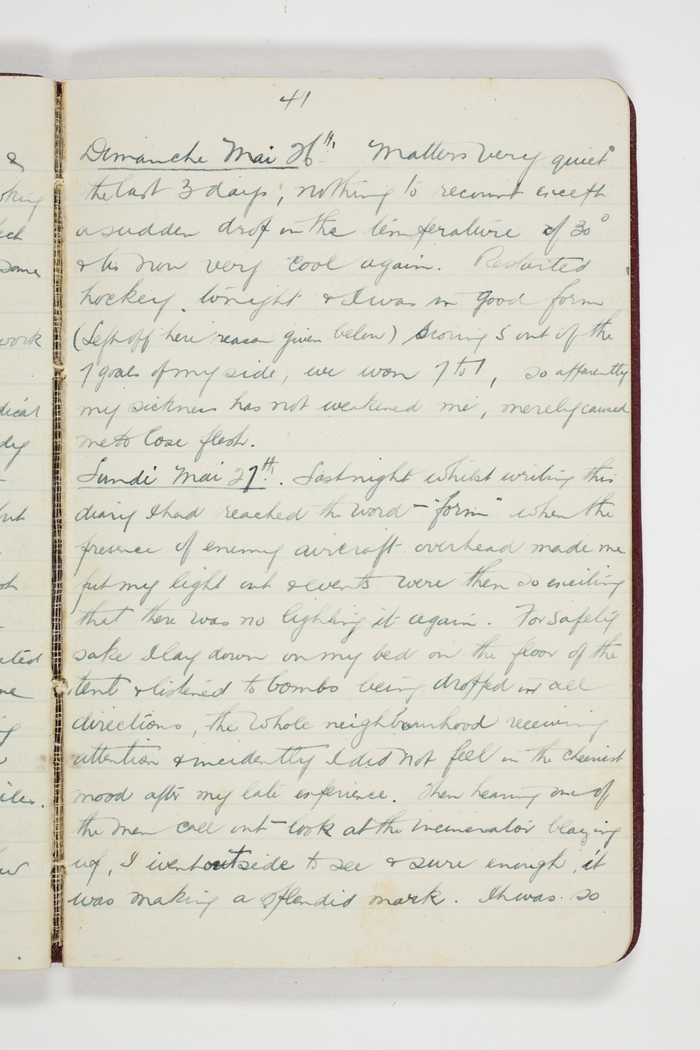 41
Dimanche Mai 26th. Matters very quiet
the last 3 days, nothing to recount except
a sudden drop in the temperature of 30°
& tis now very cool again. Restarted
hockey tonight & I was in good form
(Left off here reason given below) scoring 5 out of the
7 goals of my side, we won 7 to 1, so apparently
my sickness has not weakened me, merely caused
me to lose flesh.
Lundi Mai 27th. Last night whilst writing this
diary I had reached the word - "form" when the
presence of enemy aircraft overhead made me
put my light out & events were then so exciting
that there was no lighting it again. For safety
sake I lay down on my bed on the floor of the
tent & listened to bombs being dropped in all
directions, the whole neighbourhood receiving
attention & incidently I did not feel in the cheeriest
mood after my late experience. Then hearing one of
the men call out - look at the incinerator blazing
up, I went outside to see & sure enough it
was making a splendid mark. It was so
&
oking
ect
some
work
dical
dy
but
ated
ne
iles.